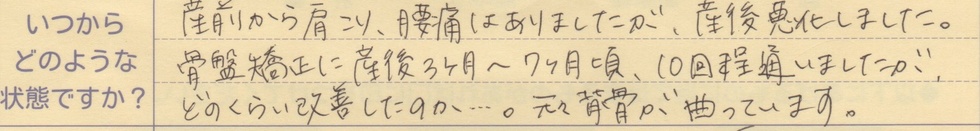 いつから
どのような
状態ですか？
産前から肩こり、腰痛はありましたが、産後悪化しました。
骨盤矯正に産後3ヶ月〜7ヶ月頃、10回程通いましたが、
どのくらい改善したのか…。元々背骨が曲っています。